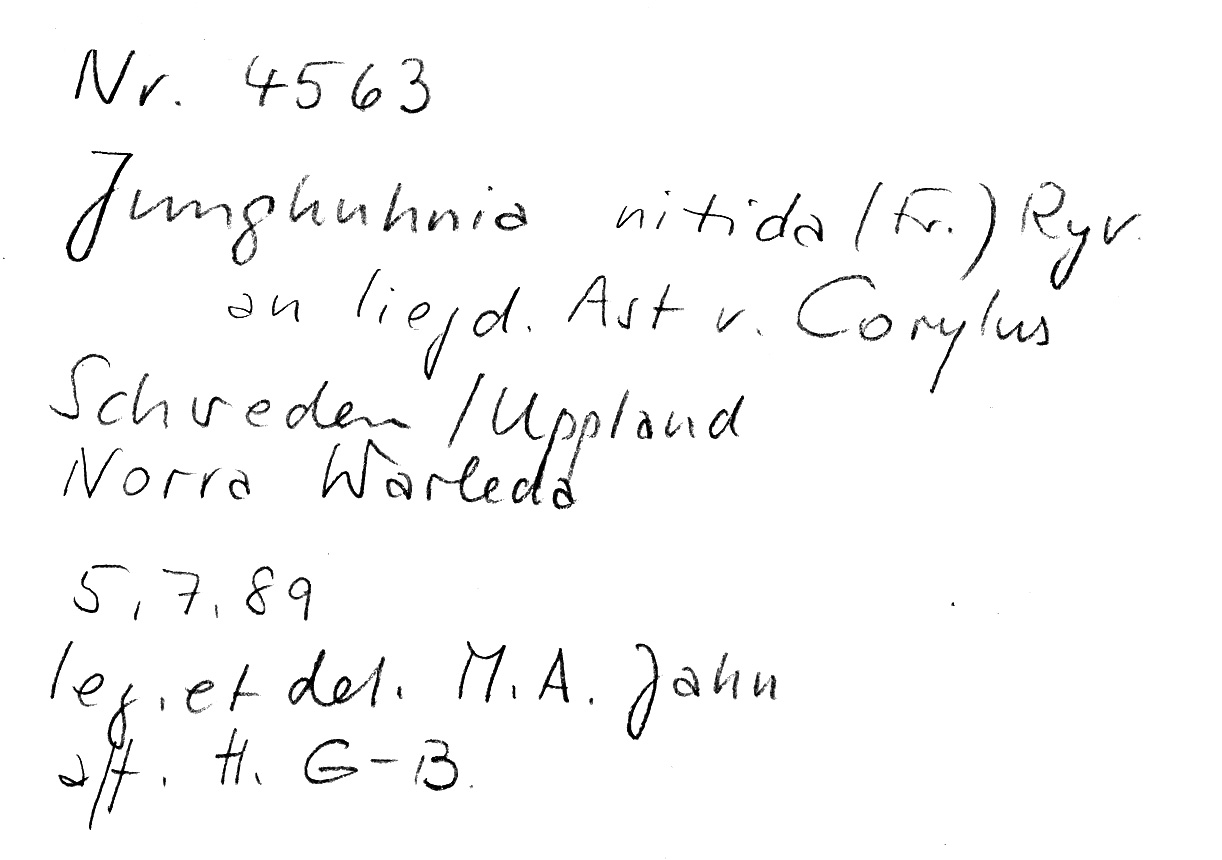 Nr. 4563
Junghuhnia nitida (Fr.) Ryv.
an liegd. Ast v. Corylus
Schweden / Uppland
Norra Warleda
5.7.89
leg. et det. M.A. Jahn
H. G-B.